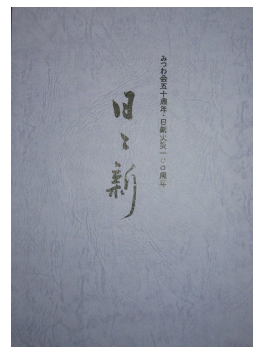 みつわ会五十周年・日新火災一〇〇周年
日々新